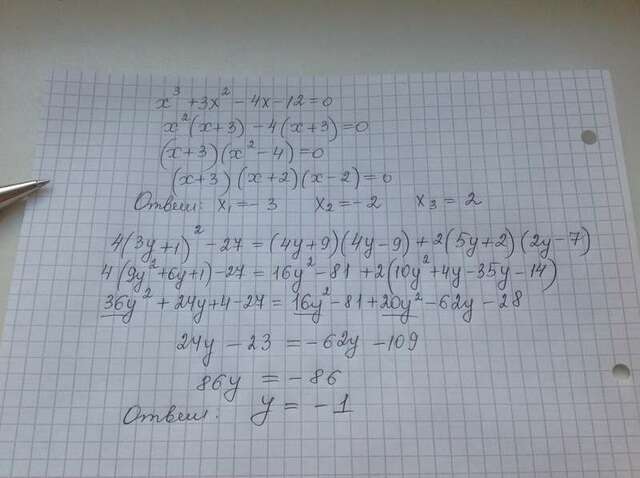 x³ + 3x² - 4x - 12 = 0
x²(x+3) - 4(x+3) = 0
(x+3)(x²-4) = 0
(x+3)(x+2)(x-2) = 0
Ответ: x₁ = -3 x₂ = -2 x₃ = 2
4(3y+1)² - 27 = (4y+9)(4y-9) + 2(5y+2)(2y-7)
4(9y²+6y+1) - 27 = 16y² - 81 + 2(10y²+4y-35y-14)
36y² + 24y + 4 - 27 = 16y² - 81 + 20y² - 62y - 28
24y - 23 = -62y - 109
86y = -86
Ответ: y = -1